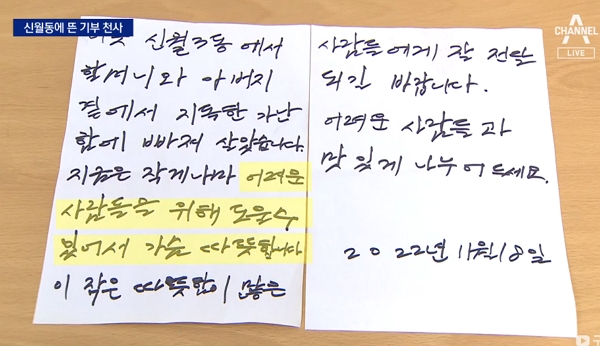 신월동에 뜬 기부 천사
CHANNEL A
LIVE
신월3동에서
할머니와 아버지
곁에서 지독한 가난
함에 빠져 살았습니다.
지금은 작게나마 어려운
사람들을 위해 도운수
있어서 가슴 따뜻합니다
이 작은 따뜻함이 많은
사람들에게 잘 전달
되길 바랍니다.
어려운 사람들과
맛있게 나누어 드세요.
2022년 11월 18일